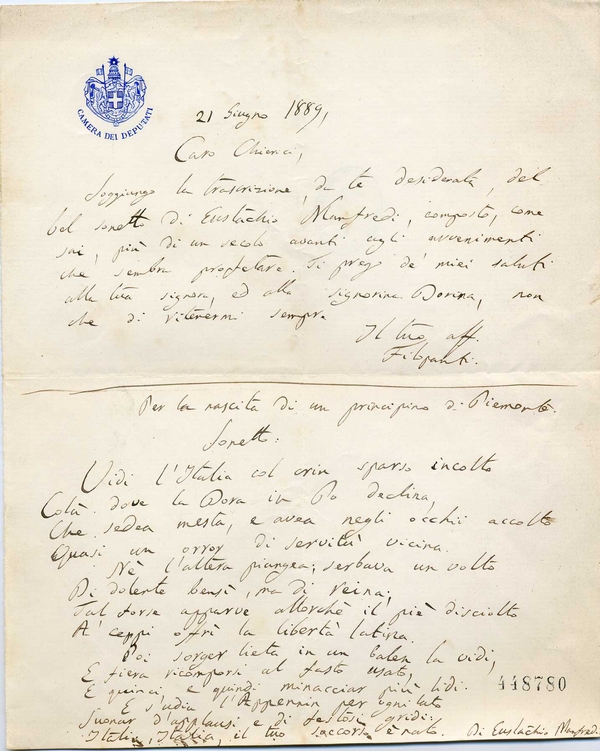 CAMERA DEI DEPUTATI
21 Giugno 1889,
Caro Chierici,
Soggiungo la trascrizione, da te desiderata, del
bel sonetto di Eustachio Manfredi, composto, come
sai, più di un secolo avanti agli avvenimenti
che sembra profetare. Ti prego de' miei saluti
alla tua signora, ed alla signorina Dorina, non
che di ritenermi sempre
Il tuo aff.
Filopanti.
Per la nascita di un principino di Piemonte.
Sonetto:
Vidi l'Italia col crin sparso incolto
Colà dove la Dora in Po declina,
Che sedea mesta, e avea negli occhii accolto
Quasi un orror di servitù vicina.
Nè l'altera piangea; serbava un volto
Di dolente bensì, ma di reina;
Tal forse apparve allorchè il piè disciolto
A' ceppi offrì la libertà latina.
Poi sorger lieta in un balen la vidi,
E fiera ricomporsi al fasto usato,
E quinci, e quindi minacciar più lidi.
E s'udia l'Appennin per ogni lato
Suonar d'applausi e di festosi gridi:
Italia, Italia, il tuo soccorso è nato.
Di Eustachio Manfredi.
448780